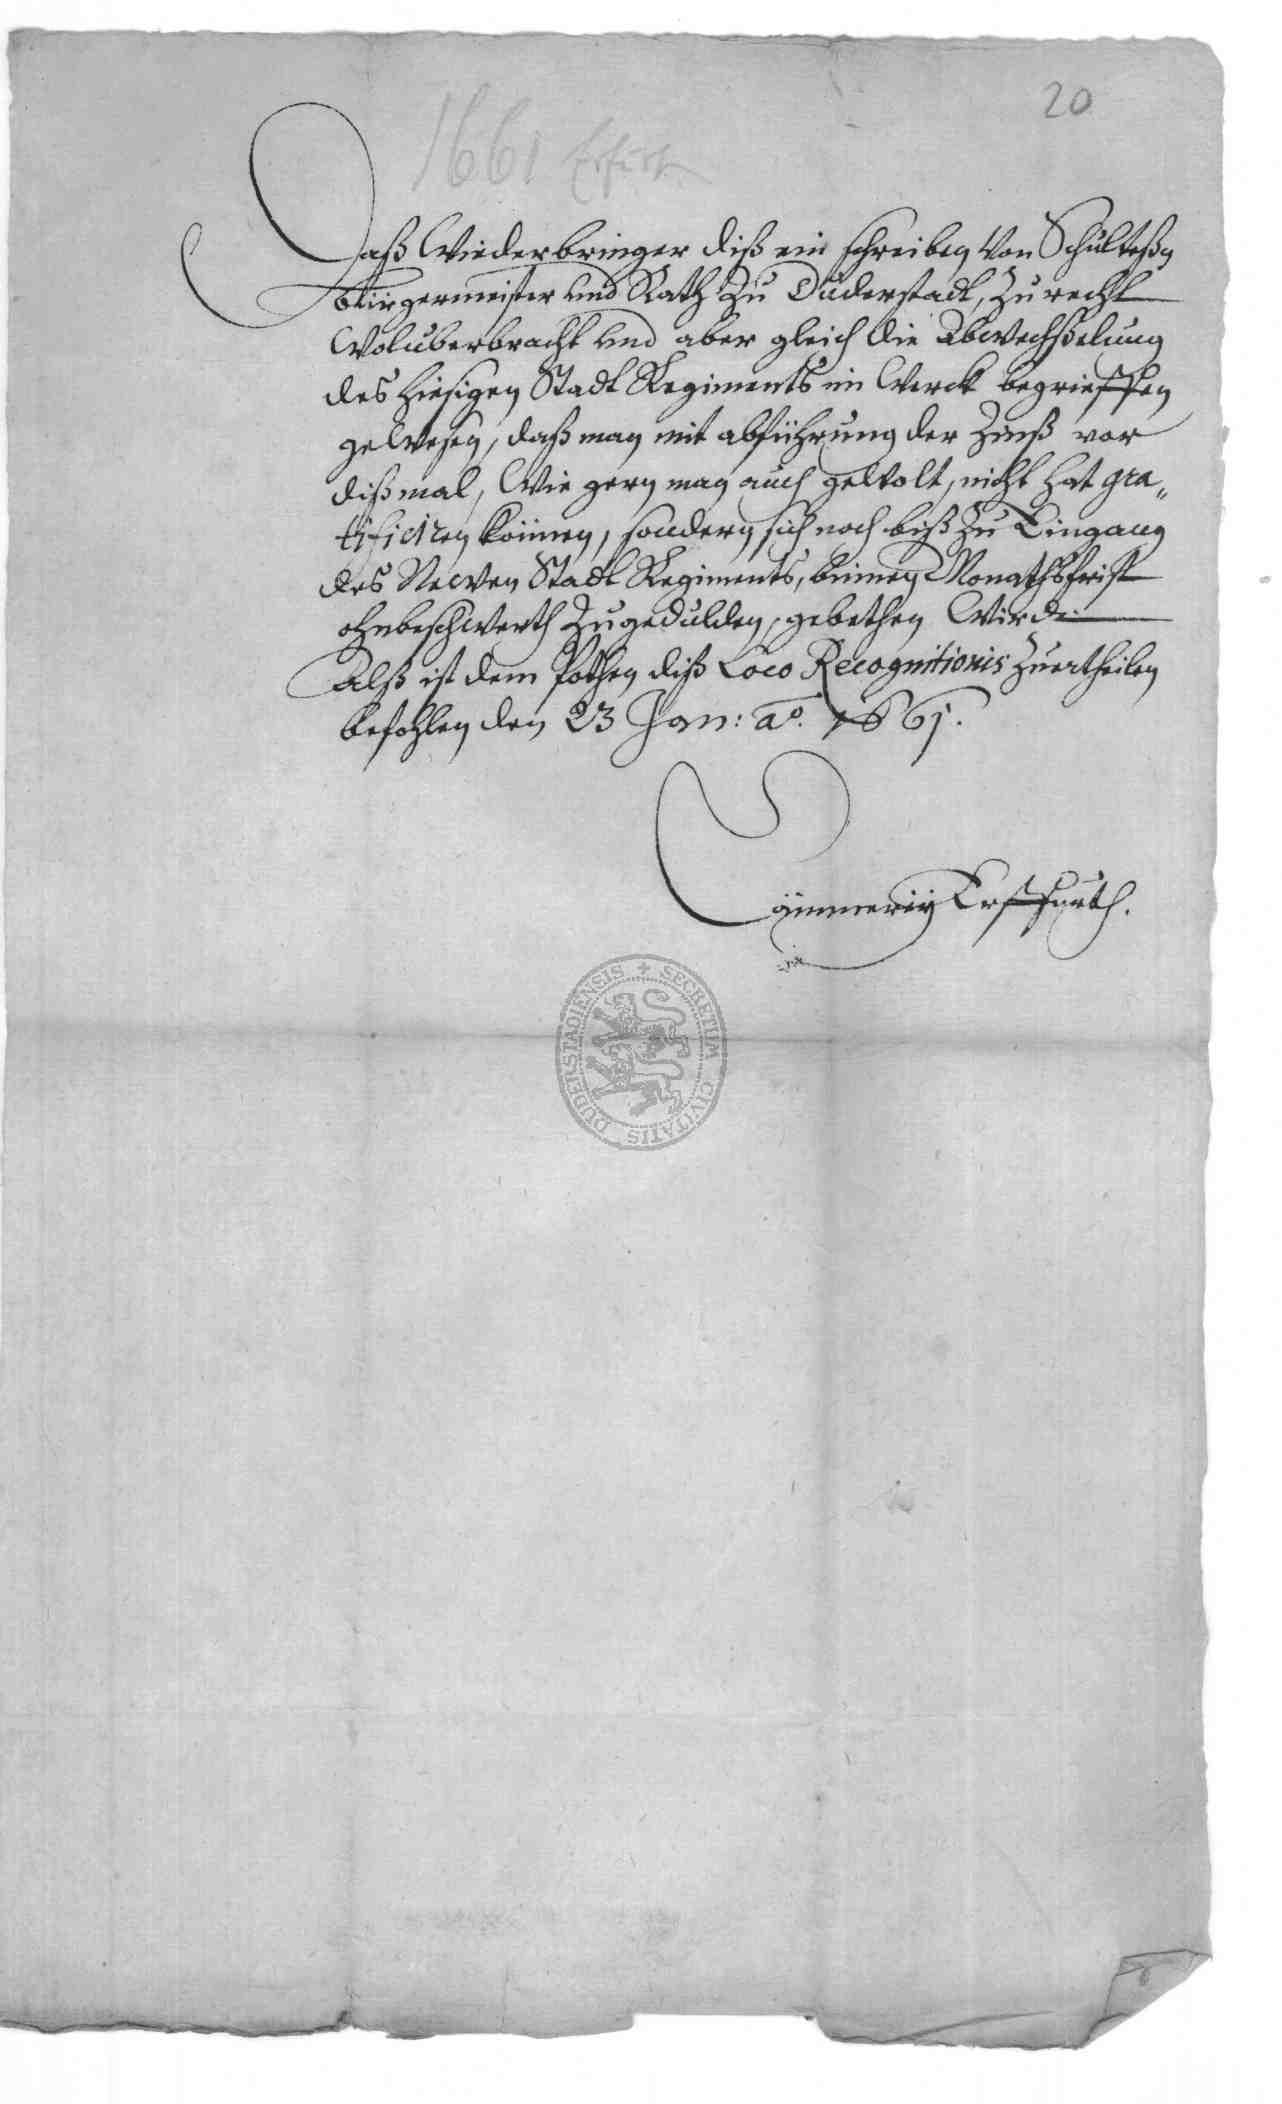 20
1661 Erfurt
Daß Wiederbringer diß ein schreiben Von Schulteßn
Bürgermeister und Rath zu Duderstadt, zu recht
Woluberbracht und aber gleich die Abwechßelung
des hiesigen Stadt Regiments im Werck begrieffen
gewesen, daß man mit abführung der Zinß vor
dißmal, Wie gern man auch gewolt, nicht hat gra„
tificiren können, sondern sich noch biß zu Eingang
des Newen Stadt Regiments, binnen Monathsfrist
ohnbeschwerth zugedulden, gebethen Wirdt
Alß ist dem Pothen diß Loco Recognitionis zuertheilen
befohlen den 23 Jan: aº. 1661.
Cämmerey Erffurth.
SECRETUM CIVITATIS DUDERSTADIENSIS